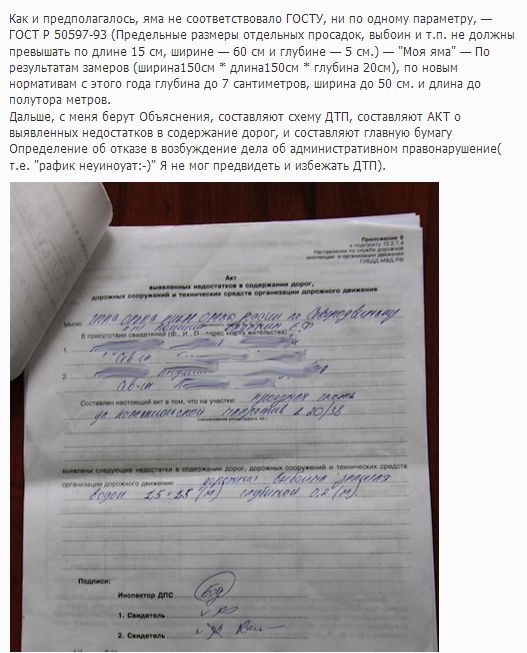 Как и предполагалось, яма не соответствовало ГОСТУ, ни по одному параметру, —
ГОСТ Р 50597-93 (Предельные размеры отдельных просадок, выбоин и т.п. не должны
превышать по длине 15 см, ширине — 60 см и глубине — 5 см.) — "Моя яма" — По
результатам замеров (ширина150см * длина150см * глубина 20см), по новым
нормативам с этого года глубина до 7 сантиметров, ширина до 50 см. и длина до
полутора метров.
Дальше, с меня берут Объяснения, составляют схему ДТП, составляют АКТ о
выявленных недостатков в содержание дорог, и составляют главную бумагу
Определение об отказе в возбуждение дела об административном правонарушение(
т.е. "рафик неуиноуат:-)" Я не мог предвидеть и избежать ДТП).
Приложение
к подпункту 10.2.7.4
Наставления по службе дорожной
инспекции и организации движения
ГИБДД МВД РФ
Акт
выявленных недостатков в содержании дорог,
дорожных сооружений и технических средств организации дорожного движения
Мною
России по Северодвинску
В присутствии свидетелей (Ф., И., О., адрес места жительства):
1.
2.
Составлен настоящий акт в том, что на участке: проезжая часть
напротив д 20/38
выявлены следующие недостатки в содержании дорог, дорожных сооружений и технических средств
организации дорожного движения: дорожная выбоина
водой 1,5 × 1,5 (м) глубиной 0,2 (м)
Подписи:
Инспектор ДПС
1. Свидетель
2. Свидетель